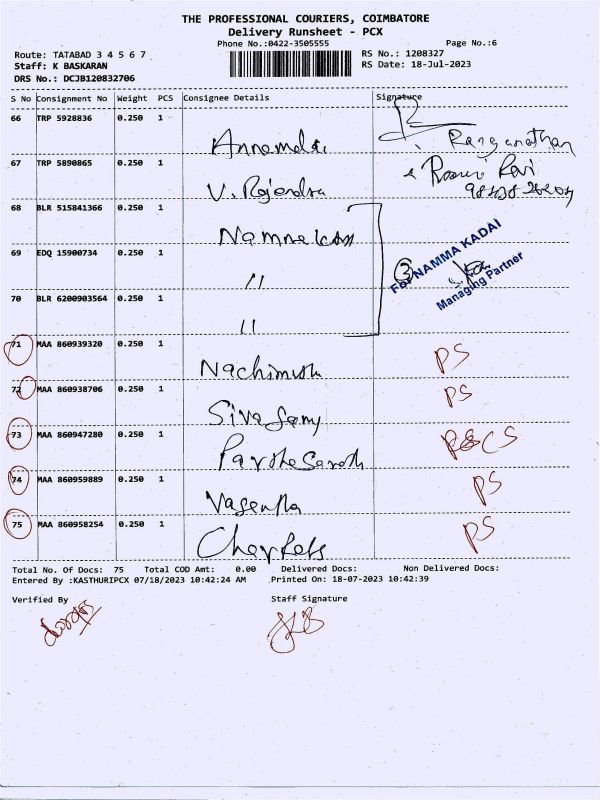 THE PROFESSIONAL COURIERS, COIMBATORE
Delivery Runsheet - PCX
Phone No.:0422-3505555 Page No.:6
Route: TATABAD 3 4 5 6 7 RS No.: 1208327
Staff: K BASKARAN RS Date: 18-Jul-2023
DRS No.: DCJB120832706
S No Consignment No Weight PCS Consignee Details Signature
66 TRP 5928836 0.250 1
Annamalai Ranganathan
67 TRP 5890865 0.250 1
V. Rajendra Ravi
68 BLR 515841366 0.250 1
69 EDQ 15900734 0.250 1
" 3 For NAMMA KADAI
Managing Partner
70 BLR 6200903564 0.250 1
"
71 MAA 860939320 0.250 1 PS
Nachimuthu
72 MAA 860938706 0.250 1 PS
Siva Samy
73 MAA 860947280 0.250 1 CS
74 MAA 860959889 0.250 1 PS
75 MAA 860958254 0.250 1 PS
Total No. Of Docs: 75 Total COD Amt: 0.00 Delivered Docs: Non Delivered Docs:
Entered By :KASTHURIPCX 07/18/2023 10:42:24 AM Printed On: 18-07-2023 10:42:39
Verified By Staff Signature